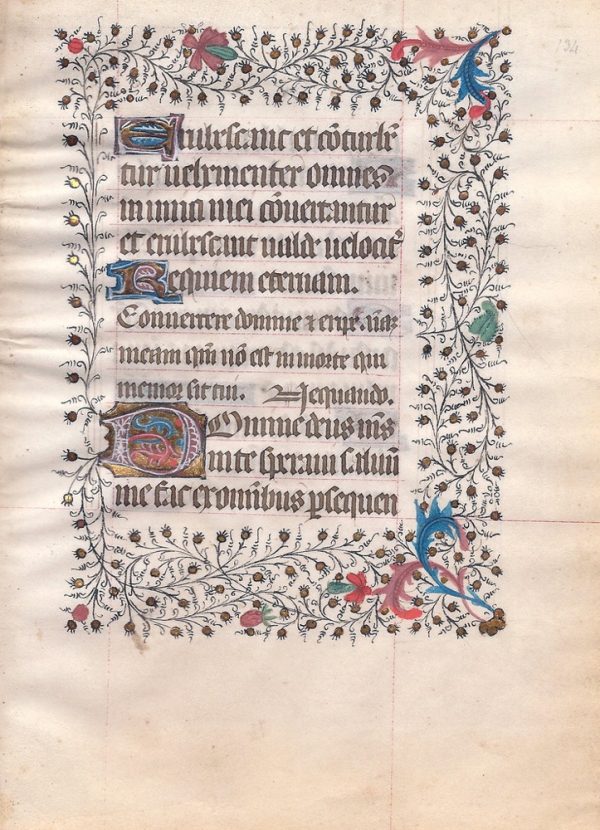 134
Erubescant et cōturbē
tur vehementer omnes
inimici mei cōvertantur
et erubescant valde velociť
Requiem eternam.
Convertere domine & eripe aīaʒ
meam qm̄ nō est in morte qui
memor sit tui. Nequando.
Domine deus ms̄
in te speravi salvū
me fac ex omībus ꝑsequen